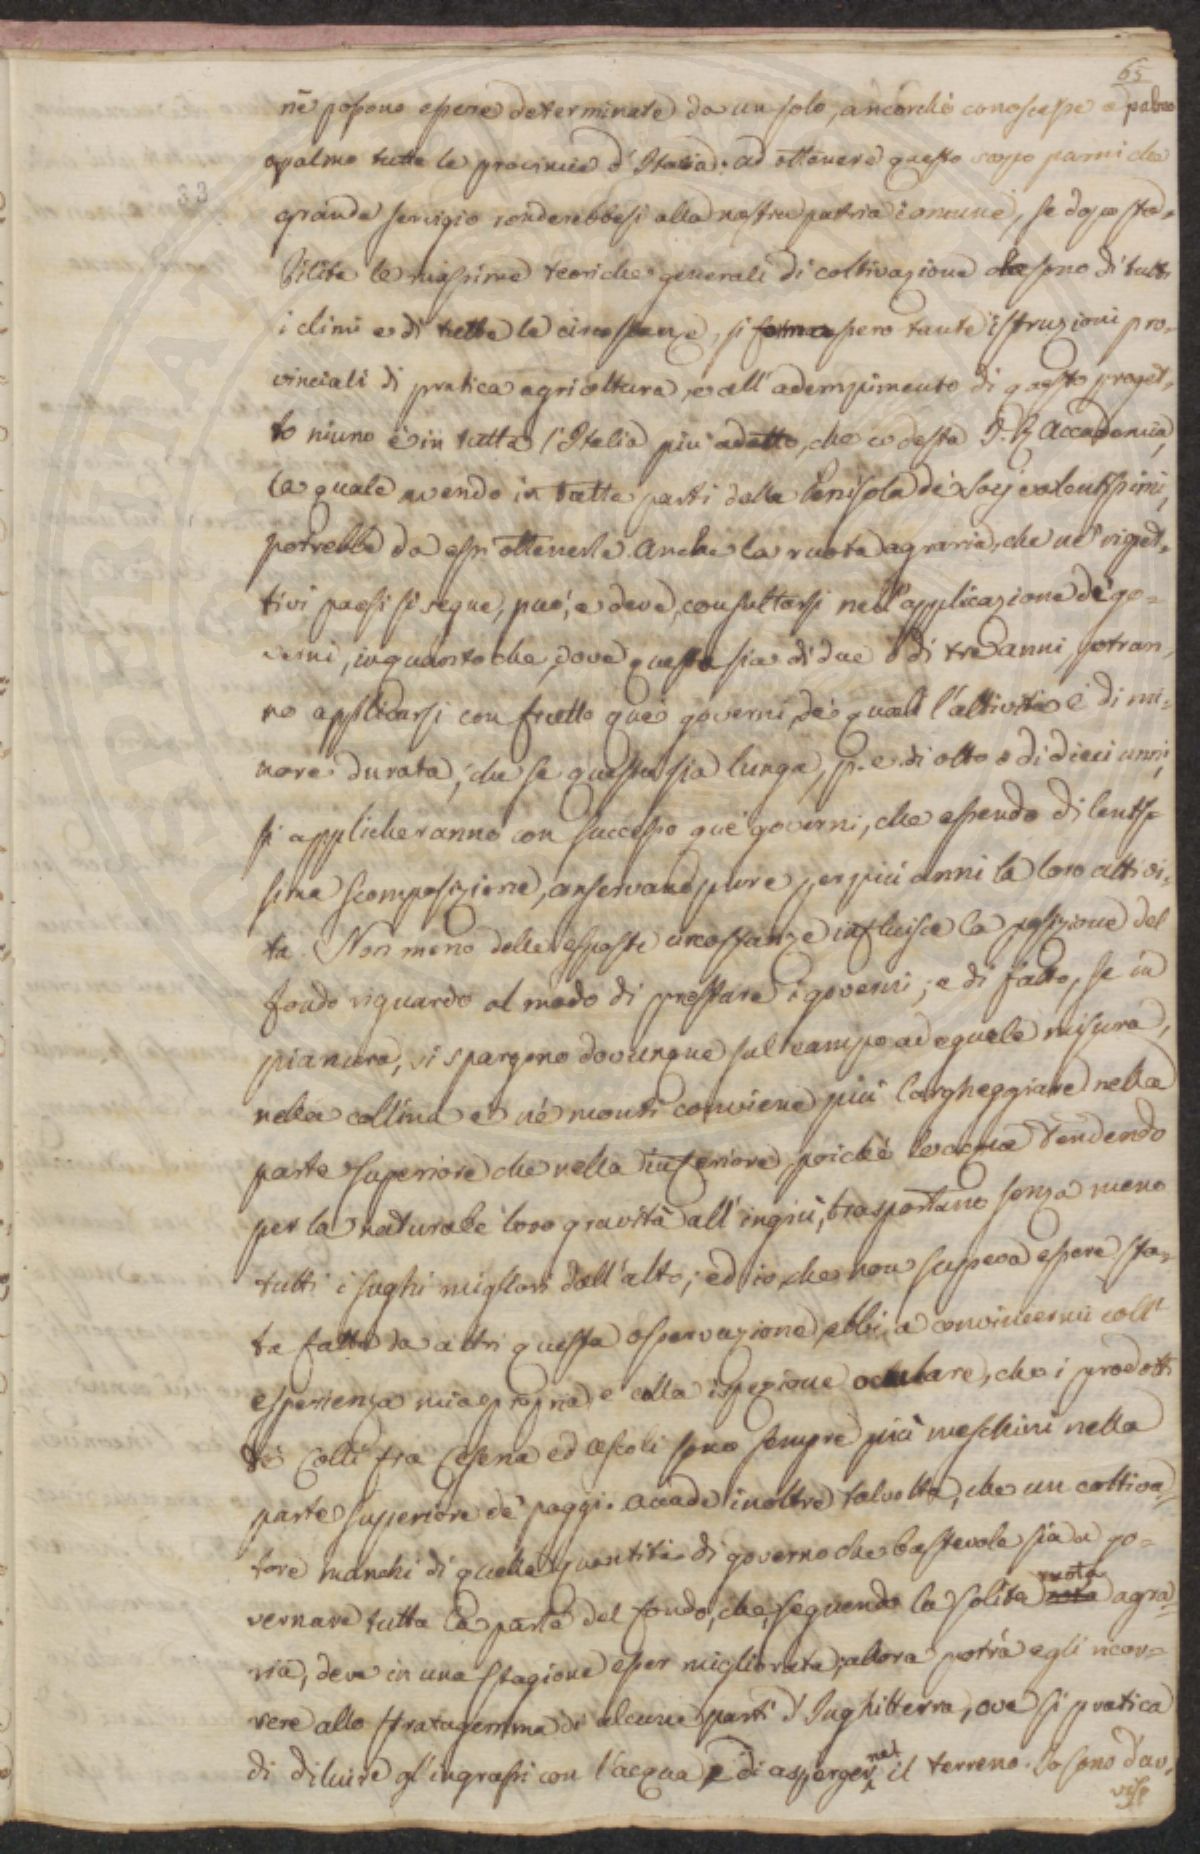 65
nē possono essere determinate da un solo, ancorchè conoscesse a palmo
a palmo tutte le provincie d'Italia: ad ottenere questo scopo parmi che
grande servigio renderebbesi alla nostra patria comune, se dopo sta-
bilite le massime teoriche generali di coltivazione che sono di tutti
i climi e di tutte le circostanze, si formassero tante istruzioni pro-
vinciali di pratica agricoltura, e all'adempimento di questo proget-
to niuno è in tutta l'Italia più adatto, che codesta I. R. Accademia,
la quale avendo in tutte parti della Penisola de' Socj valentissimi,
potrebbe da essi ottenerle. Anche la ruota agraria, che ne' rispet-
tivi paesi si segue, può, e deve, consultarsi nell'applicazione de' go-
verni, inquantochè, dove questa sia di due o di tre anni, potran-
no applicarsi con frutto que' governi, de' quali l'attività è di mi-
nore durata; che se questa sia lunga, p. e. di otto o di dieci anni,
si applicheranno con successo que' governi, che essendo di lentis-
sima scomposizione, conservano pure per più anni la loro attivi-
tà. Non meno delle esposte circostanze influisce la posizione del
fondo riguardo al modo di prestare i governi; e di fatto, se in
pianura, si spargono dovunque sul campo ad eguale misura,
nella collina e ne' monti conviene più largheggiare nella
parte superiore che nella inferiore, poichè le acque tendendo
per la naturale loro gravità all'ingiù, trasportano senza meno
tutti i sughi migliori dall'alto; ed io, che non sapeva essere sta-
ta fatta da altri questa osservazione, ebbi a convincermi coll'
esperienza mia propria, e colla ispezione oculare, che i prodotti
de' Colli fra Cesena ed Ascoli sono sempre più meschini nella
parte superiore de' poggi. Accade inoltre talvolta, che un coltiva-
tore manchi di quella quantità di governo che bastevole sia a go-
vernare tutta la parte del fondo, che, seguendo la solita ruota agra-
ria, deve in una stagione esser migliorata; allora potrà egli ricor-
rere allo stratagemma di alcune parti d'Inghilterra, ove si pratica
di diluire gl'ingrassi con l'acqua e di aspergerne il terreno. Io sono d'av-
viso